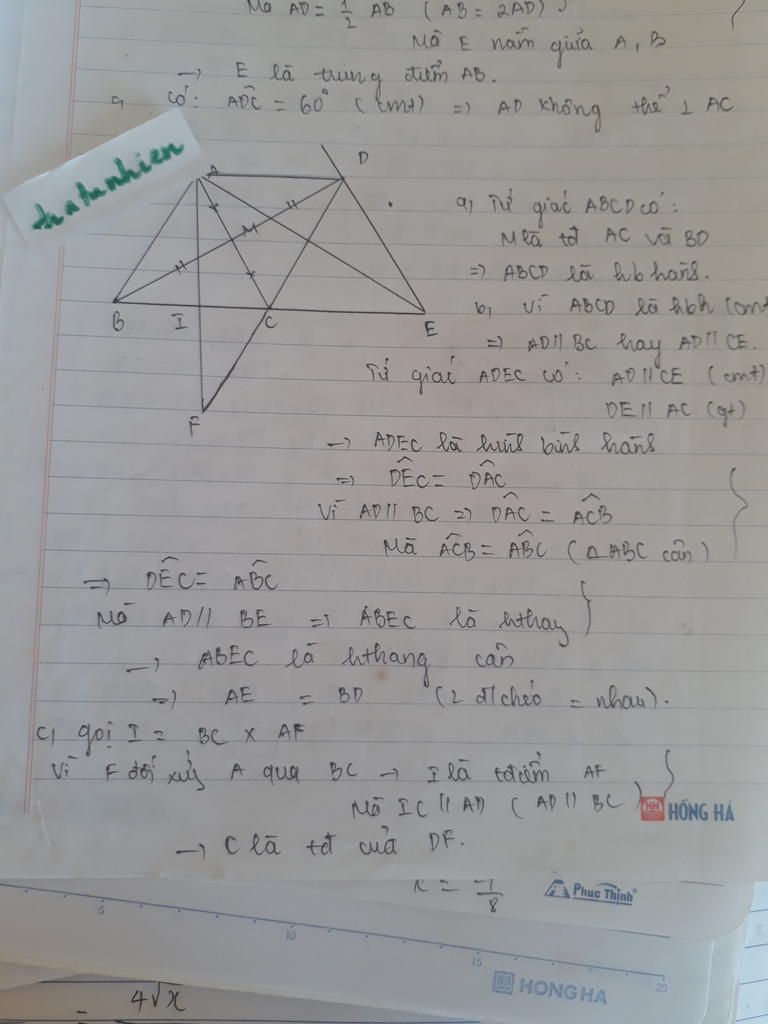 Mà AD = 1/2 AB ( AB = 2AD )
Mà E nằm giữa A, B
→ E là trung điểm AB.
có: ADC = 60° ( cmt ) => AD không thể ⊥ AC
thatunhien
A
D
M
B
I
C
E
F
a, Tứ giác ABCD có:
M là tđ AC và BD
=> ABCD là hb hành.
b, Vì ABCD là hbh (cmt
=> AD // BC hay AD // CE.
Tứ giác ADEC có: AD // CE (cmt)
DE // AC (gt)
→ ADEC là hình bình hành
=> DEC = DAC
Vì AD // BC => DAC = ACB
Mà ACB = ABC ( Δ ABC cân )
=> DEC = ABC
Mà AD // BE => ABEC là hthang
→ ABEC là hthang cân
=> AE = BD ( 2 đ/chéo = nhau ).
c, gọi I = BC x AF
Vì F đối xứng A qua BC → I là tđiểm AF
Mà IC // AD ( AD // BC )
HH HỒNG HÀ
→ C là tđ của DF.
Phuc Thịnh
5
10
15
20
HONG HA
4√x